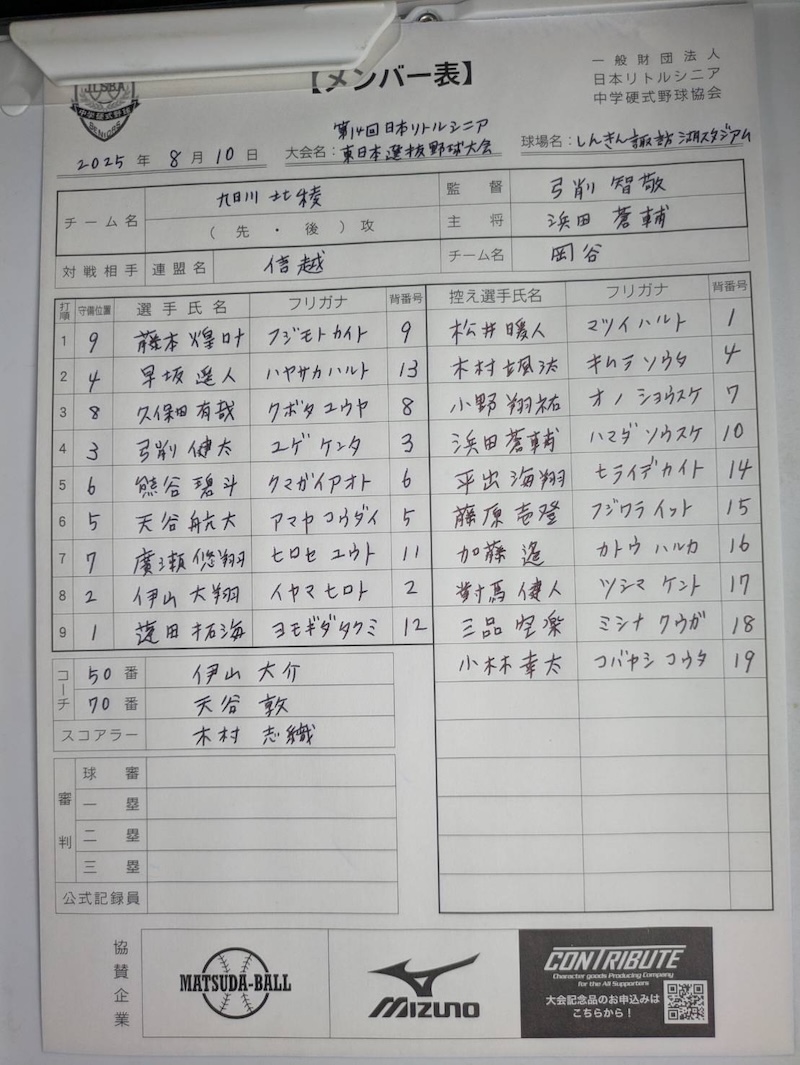 JLSBA
中学硬式野球
SENIORS
【メンバー表】
一般財団法人
日本リトルシニア
中学硬式野球協会
2025年 8月 10日
大会名：第14回日本リトルシニア
東日本選抜野球大会
球場名：しんきん諏訪湖スタジアム
チーム名 旭川北稜 監督 弓削 智敬
（先・後）攻 主将 浜田 蒼輔
対戦相手 連盟名 信越 チーム名 岡谷
打順 守備位置 選手氏名 フリガナ 背番号 控え選手氏名 フリガナ 背番号
1 9 藤本 煌叶 フジモトカイト 9 松井暖人 マツイハルト 1
2 4 早坂 遥人 ハヤサカハルト 13 木村颯汰 キムラ ソウタ 4
3 8 久保田有哉 クボタユウヤ 8 小野 翔祐 オノ ショウスケ 7
4 3 弓削 健太 ユゲ ケンタ 3 浜田蒼輔 ハマダソウスケ 10
5 6 熊谷 碧斗 クマガイアオト 6 平出 海翔 ヒライデカイト 14
6 5 天谷 航大 アマヤ コウダイ 5 藤原 壱登 フジワライット 15
7 7 廣瀬 悠翔 ヒロセ ユウト 11 加藤 遥 カトウ ハルカ 16
8 2 伊山 大翔 イヤマ ヒロト 2 對馬 健人 ツシマ ケント 17
9 1 蓬田 拓海 ヨモギダタクミ 12 三品 空楽 ミシナ クウガ 18
小林 幸太 コバヤシ コウタ 19
コーチ 50番 伊山 大介
70番 天谷 敦
スコアラー 木村 志織
審判 球審
一塁
二塁
三塁
公式記録員
協賛企業
MATSUDA-BALL
MIZUNO
CONTRIBUTE
Character goods Producing Company
for the All Supporters
大会記念品のお申込みは
こちらから！